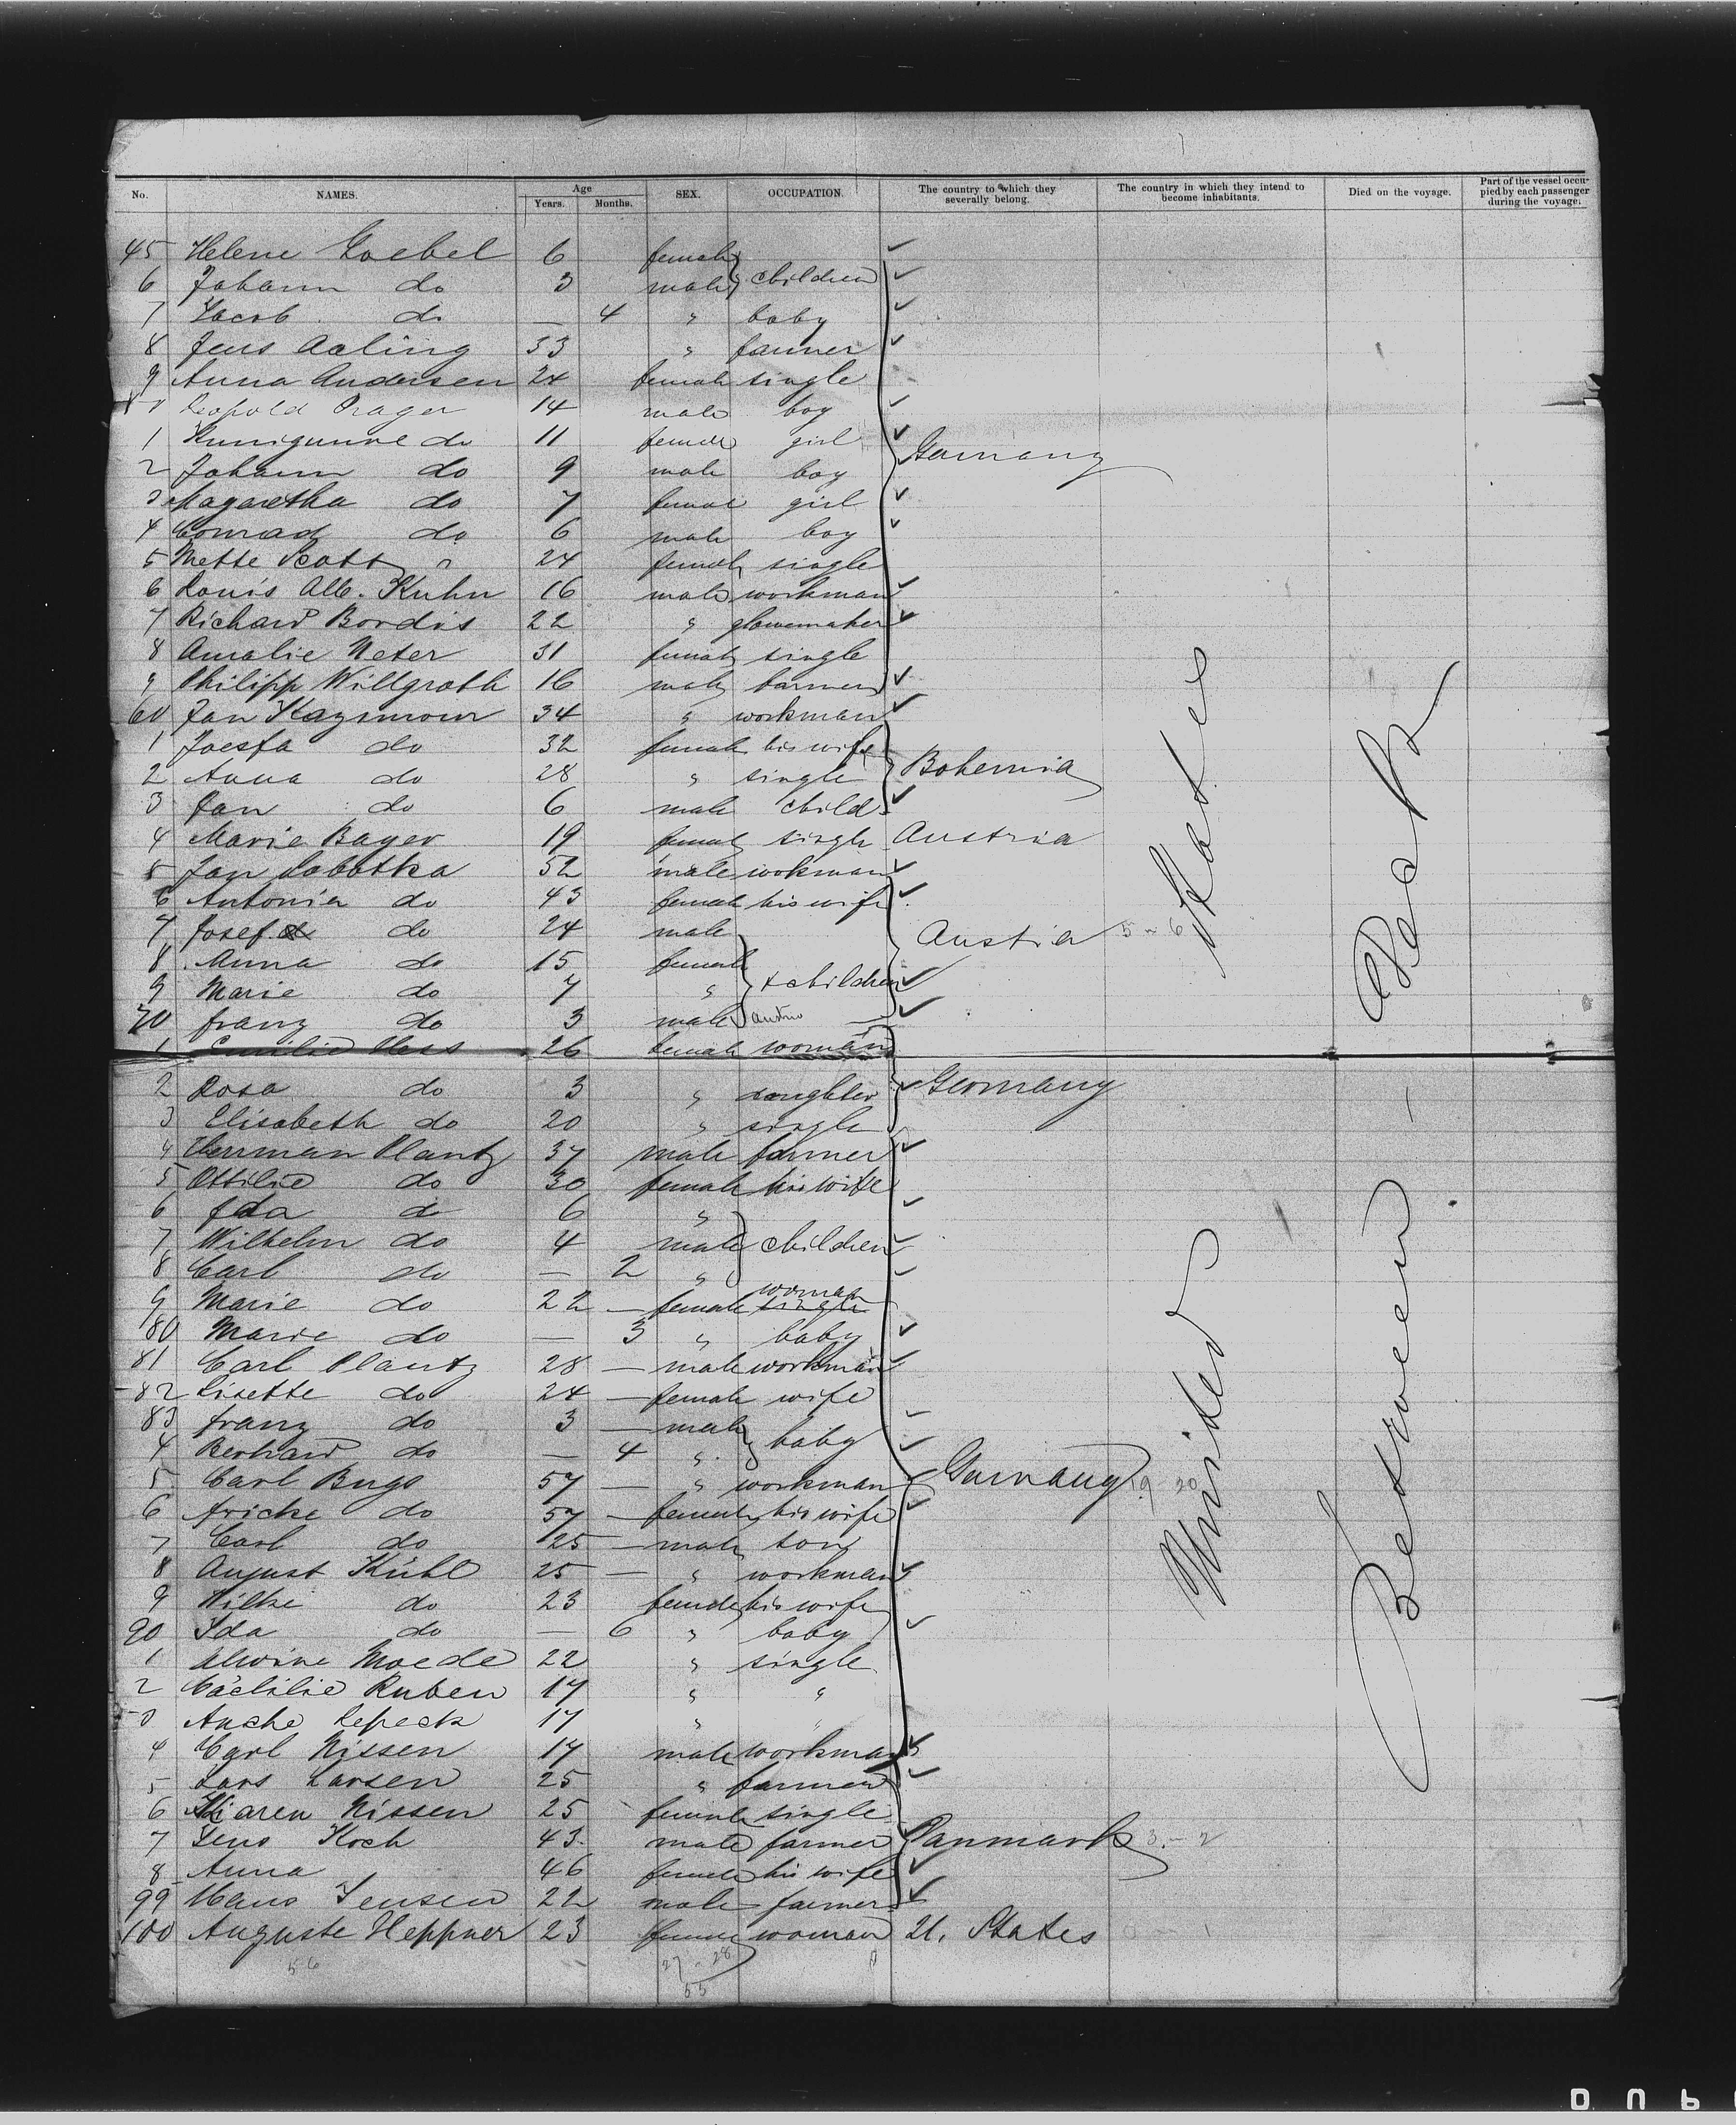 No. NAMES. Age Years. Months. SEX. OCCUPATION. The country to which they severally belong. The country in which they intend to become inhabitants. Died on the voyage. Part of the vessel occupied by each passenger during the voyage.
45 Helene Goebel 6 female
6 Johann do 3 male } children
7 Jacob do — 4 " baby
8 Jens Aaling 33 " farmer
9 Anna Andersen 24 female single
Leopold Prager 14 male boy
1 Kunigunde do 11 female girl Germany
2 Johann do 9 male boy
3 Magaretha do 7 female girl
4 Conrad do 6 male boy
5 Mette 24 female single
6 Louis Alb. Kuhn 16 male workman
7 Richard Bordis 22 " glowemaker
8 Amalie Neter 31 female single
9 Philipp Willgroth 16 male farmer
60 Jan Kazimour 34 " workman
1 Joesfa do 32 female his wife
2 Anna do 28 " single Bohemia
3 Jan do 6 male child
4 Marie Bayer 19 female single Austria
5 Jan Sobotka 52 male wokman
6 Antonia do 43 female his wife
7 Josef do 24 male Austria 5 - 6
8 Anna do 15 female
9 Marie do 7 " } children
70 franz do 3 male Austria
1 Emilie Hess 26 female woman
2 Rosa do 3 " daughter Germany
3 Elisabeth do 20 " single
4 Herrman Plantz 37 male farmer
5 Ottilie do 30 female his wife
6 Ida do 6 "
7 Wilhelm do 4 male } children
8 Carl do — 2 "
9 Marie do 22 — female single woman
80 Marie do — 3 " baby
81 Carl Plantz 28 — male workman
82 Lisette do 24 — female wife
83 franz do 3 — male
4 Berhard do — 4 " } baby
5 Carl Bugs 57 — " workman Germany 19 20
6 fricke do 57 — female his wife
7 Carl do 25 — male son
8 August Kühl 25 — " workman
9 Hilke do 23 female his wife
90 Ida do — 6 " baby
1 Alwine Moede 22 " single
2 Cäcilie Ruben 17 " "
3 Anche Repeck 17 " "
4 Carl Nissen 17 male workman
5 Lars Larsen 25 " farmer
6 Karen Nissen 25 female single
7 Jens Koch 43 male farmer Danmark 3 - 2
8 Anna 46 female his wife
99 Hans Jensen 22 male farmer
100 Auguste Heppner 23 female woman U. States
United States
Between Deck
56
27 - 28
55